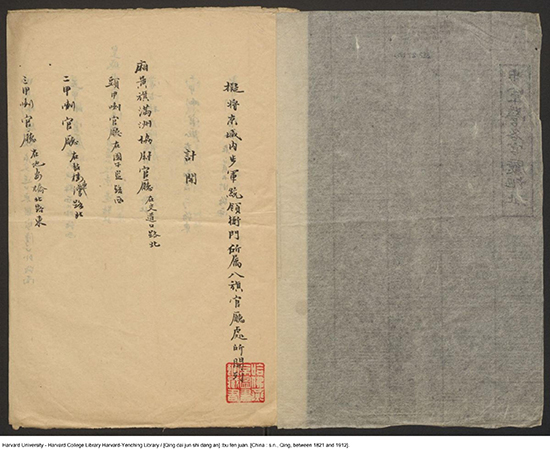 擬將京城內步軍統領衙門所屬八旗官廳處所開列
計開
廂黃旗滿洲協尉官廳在交道口路北
頭甲喇官廳在國子監路西
二甲喇官廳在鼓樓灣路北
三甲喇官廳在地安橋北路東
Harvard University - Harvard College Library Harvard-Yenching Library / [Qing dai jun shi dang an] :bu fen juan. [China : s.n., Qing, between 1821 and 1912].